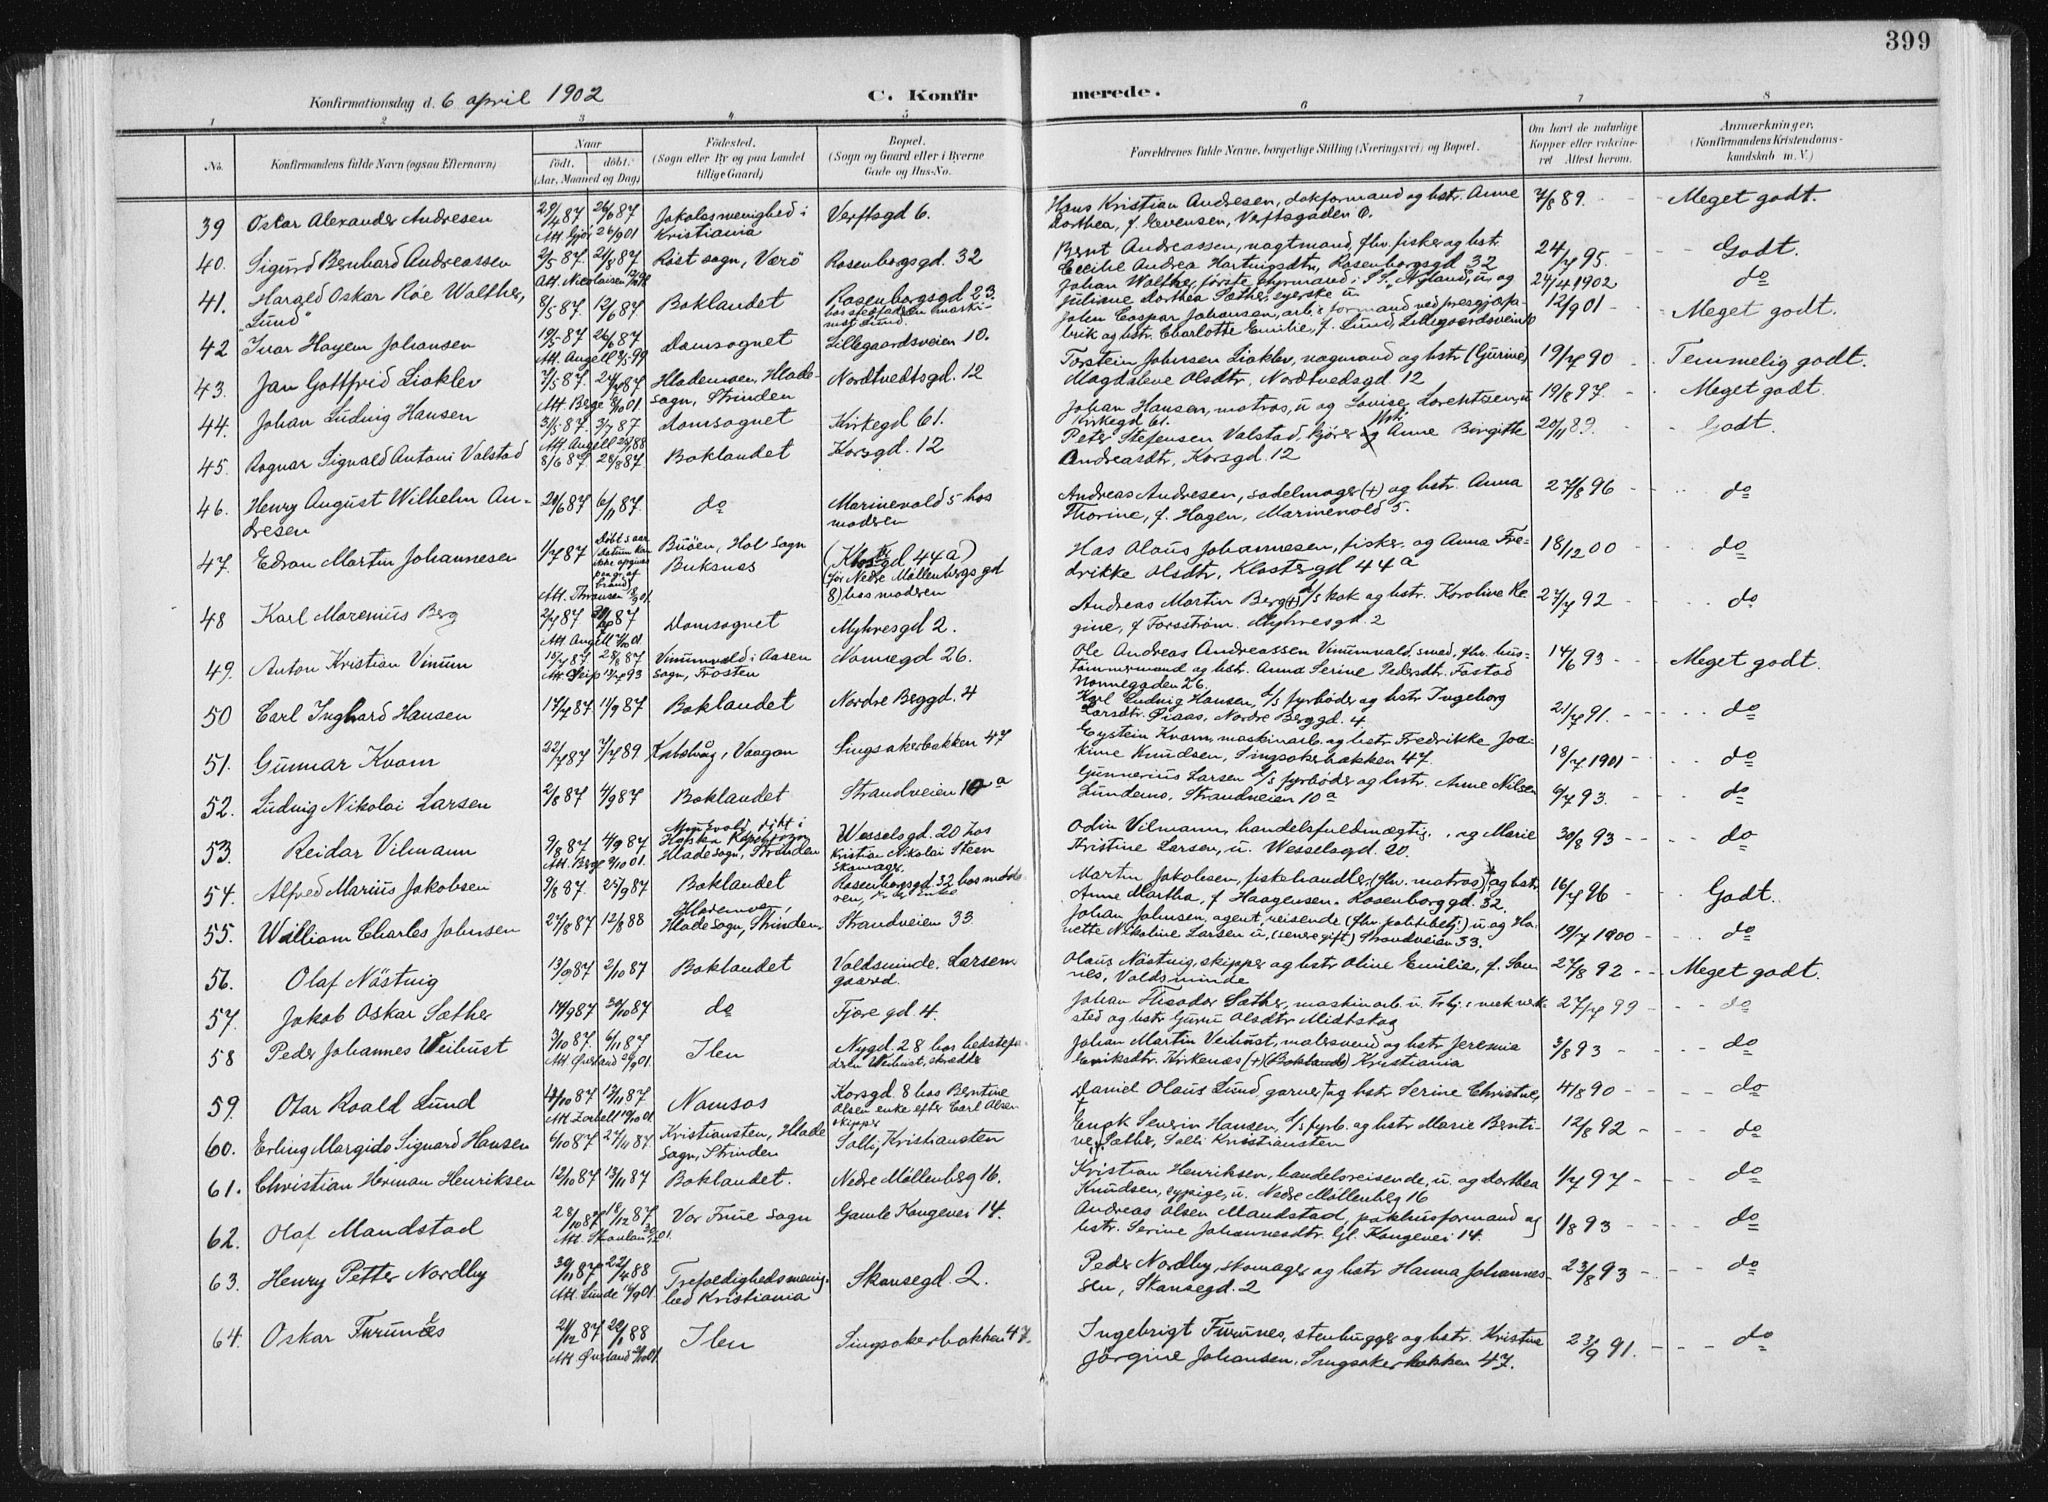 399
Konfirmationsdag d. 6 april 1902 C. Konfirmerede.
1 2 3 4 5 6 7 8
No. Konfirmandens fulde Navn (ogsaa Efternavn) Naar födt. döbt. (Aar, Maaned og Dag) Födested. (Sogn eller By og paa Landet tillige Gaard) Bopæl. (Sogn og Gaard eller i Byerne Gade og Hus-No. Forældrenes fulde Navne, borgerlige Stilling (Næringsvei) og Bopæl. Om havt de naturlige Kopper eller vaccineret Attest herom. Anmærkninger, (Konfirmandens Kristendomskundskab m. V.)
39 Oskar Alexander Andresen 29/4 87 26/6 87 Jakobs menighed i Kristiania Verftsgd 6. Hans Kristian Andresen, dokformand og hstr. Anne Dorthea, f. Evensen, Verftsgaden 6. 7/8 89. Meget godt.
40. Sigurd Bernhard Andreassen 2/5 87. 21/8 87 Röst sogn, Værö Rosenborgsgd. 32 Bernt Andreassen, nagtmand, fhv. fisker og hstr. Cecilie Andrea Hartvigsdtr, Rosenborgsgd 32 24/7 95. Godt.
41. Harald Oskar Röe Walther, "Lund" 8/5 87 12/6 87 Baklandet Rosenborgsgd 23. hos stedfaderen maskinist Lund. Johan Walther, förste styrmand i S.S. "Nyland", u. og Juliane Dorthea Sæther, syerske u 24/4 1902 do
42 Ivar Hagem Johansen 19/5 87 26/6 87 Att. Angell 3/5 99 Domsognet Lillegaardsveien 10. John Caspar Johansen, arb.s formand ved presgjærfabrik og hstr. Charlotte Emilie, f. Lund, Lillegaardsvein 10 12/9 01 Meget godt.
43. Jan Gottfrid Liaklev 7/5 87. 24/7 87 Att. Berge 8/10 01. Hlademoen, Hlade sogn, Strinden Nordtvedtsgd. 12 Torstein Johnsen Liaklev, nagmand og hstr (Gurine) Magdalene Olsdtr, Nordtvedsgd. 12 19/7 90 Temmelig godt.
44. Johan Ludvig Hansen 31/5 87. 3/7 87 Domsognet Kirkegd 61. Johan Hansen, matros, u og Lovise Lorentzen, u Kirkegd 61. 19/8 97. Meget godt.
45. Ragnar Sigvald Antoni Valstad 8/6 87. 28/8 87. Baklandet Korsgd. 12 Peter Stefensen Valstad, kjörer og Anne Birgitte Andreasdtr, Korsgd. 12 20/11 89. Godt.
46. Henry August Wilhelm Andresen 29/6 87 6/11 87. do Marinevold 5 hos moderen Andreas Andresen, sadelmager (+) og hstr. Anna Thorine, f. Hagen, Marinevold 5. 27/8 96 do
47. Edvan Martin Johannesen 1/7 87 Buöen, Hol sogn Buksnes (Klostergd 44a) (för Nedre Möllenbergs gd 8) hos moderen Has Olaus Johannesen, fisker, og Anna Fredrikke Olsdtr, Klostergd 44 a 18/12 00 do
48 Karl Marenius Berg 2/7 87 87 Att. Angell 7/10 01 Domsognet Myhresgd 2. Andreas Martin Berg (+) d/s kok og hstr. Karoline Regine, f Forsström. Myhresgd. 2 27/7 92 do
49. Anton Kristian Vinum 15/7 87. 28/8 87 Vinumvald i Aasen sogn, Frosten Nonnegd 26. Ole Andreas Andreassen Vinumvald, smed, fhv. hustömmermand og hstr. Anna Serine Pedersdtr. Fostad Nonnegaden 26. 14/6 93 Meget godt.
50 Carl Inghard Hansen 17/7 87 11/9 87 Baklandet Nordre Berggd. 4 Karl Ludvig Hansen, d/s fyrböder og hstr Ingeborg Larsdtr. Öiaas, Nordre Berggd. 4. 21/7 91. do
51. Gunnar Kvam 22/7 87 7/7 89 Kabelvåg, Vaagan Singsakerbakken 47 Eystein Kvam, maskinarb. og hstr Fredrikke Joakime Knudsen, Singsakerbakken 47. 18/7 1901 do
52. Ludvig Nikolai Larsen 2/8 87 4/9 87 Baklandet Strandveien 10 a Gunnerius Larsen d/s fyrböder og hstr. Anne Nilsen Lundemo, Strandveien 10 a 6/7 93. do
53. Reidar Vilmann 9/8 87 4/9 87 Hlade sogn, Strinden Wesselsgd. 20 hos Kristian Nikolai Steen skomager. Odin Vilmann, handelsfuldmægtig, og Marie Kristine Larsen, u. Wesselsgd. 20. 30/8 93 do
54. Alfred Marius Jakobsen 9/8 87. 25/9 87 Baklandet Rosenborgsgd. 32 hos moderen, Martin Jakobsen, fiskehandler, (fhv. matros) og hstr Anne Martha, f Haagensen. Rosenborggd. 32. 16/7 96 Godt.
55. William Charles Johnsen 27/8 87 12/8 88 Hlademoen, Hlade sogn, Strinden. Strandveien 33. Johan Johnsen, agent, reisende (fhv. politibetj.) u. og Hanette Nikoline Larsen u, (senere gift) Strandveien 33. 19/7 1900 do
56. Olaf Nöstvig 13/9 87 2/10 87 Baklandet Voldsminde, Larsemgaard. Olaus Nöstvig, skipper og hstr Oline Emilie, f. Sannes, Voldsminde 27/8 92 Meget godt.
57. Jakob Oskar Sæther 14/9 87 30/10 87 do Fjæregd 4. Johan Theodor Sæther, maskinarb. u. Trhj. s mek verksted og hstr Guru Olsdtr Midtskog 27/7 99 do
58 Peder Johannes Weihust 3/10 87. 6/11 87. Att Överland 29/9 01. Ilen Nygd. 28 hos bedstefaderen Weihust, skredder Johan Martin Veihust, malersvend og hstr Jeremia Eriksdtr. Kirkenæs (+) (Baklande) Kristiania 3/8 93 do
59. Otar Roald Lund 4/10 87 13/11 87 Namsos Korsgd. 8 hos Bentine Olsen enke efter Carl Olsen skipper Daniel Olaus Lund garver og hstr Serine Christine, 4/8 90 do
60. Erling Margido Sigvard Hansen 6/10 87 27/11 87 Kristiansten, Hlade sogn, Strinden Salli, Kristiansten Enok Severin Hansen, d/s fyrb. og hstr Marie Bentine, Sæther, Salli Kristiansten 12/8 92 do
61. Christian Herman Henriksen 12/10 87 13/11 87 Baklandet. Nedre Möllenberg 16. Kristian Henriksen, handelsreisende, u. og Dorthea Knudsen, sypige, u. Nedre Möllenberg 16 1/7 97 do
62. Olaf Mandstad 28/10 87 18/12 87 Vor Frue sogn Gamle Kongevei 14. Andreas Olsen Mandstad, pakhusformand og hstr. Serine Johannesdtr. Gl. Kongevei 14. 1/8 93 do
63. Henry Petter Nordby 30/11 87 22/4 88 Att. Lunde 16/9 01. Trefoldighedsmenighed Kristiania Skansegd. 2. Peder Nordby, skomager og hstr Hanna Johannessen, Skansegd. 2 23/8 93 do
64. Oskar Furunes 21/12 87 22/1 88 Att Överland Ilen Singsakerbakken 47. Ingebrigt Furunes, stenhugger og hstr. Kristine Jörgine Johansen, Singsakerbakken 47. 23/9 91. do